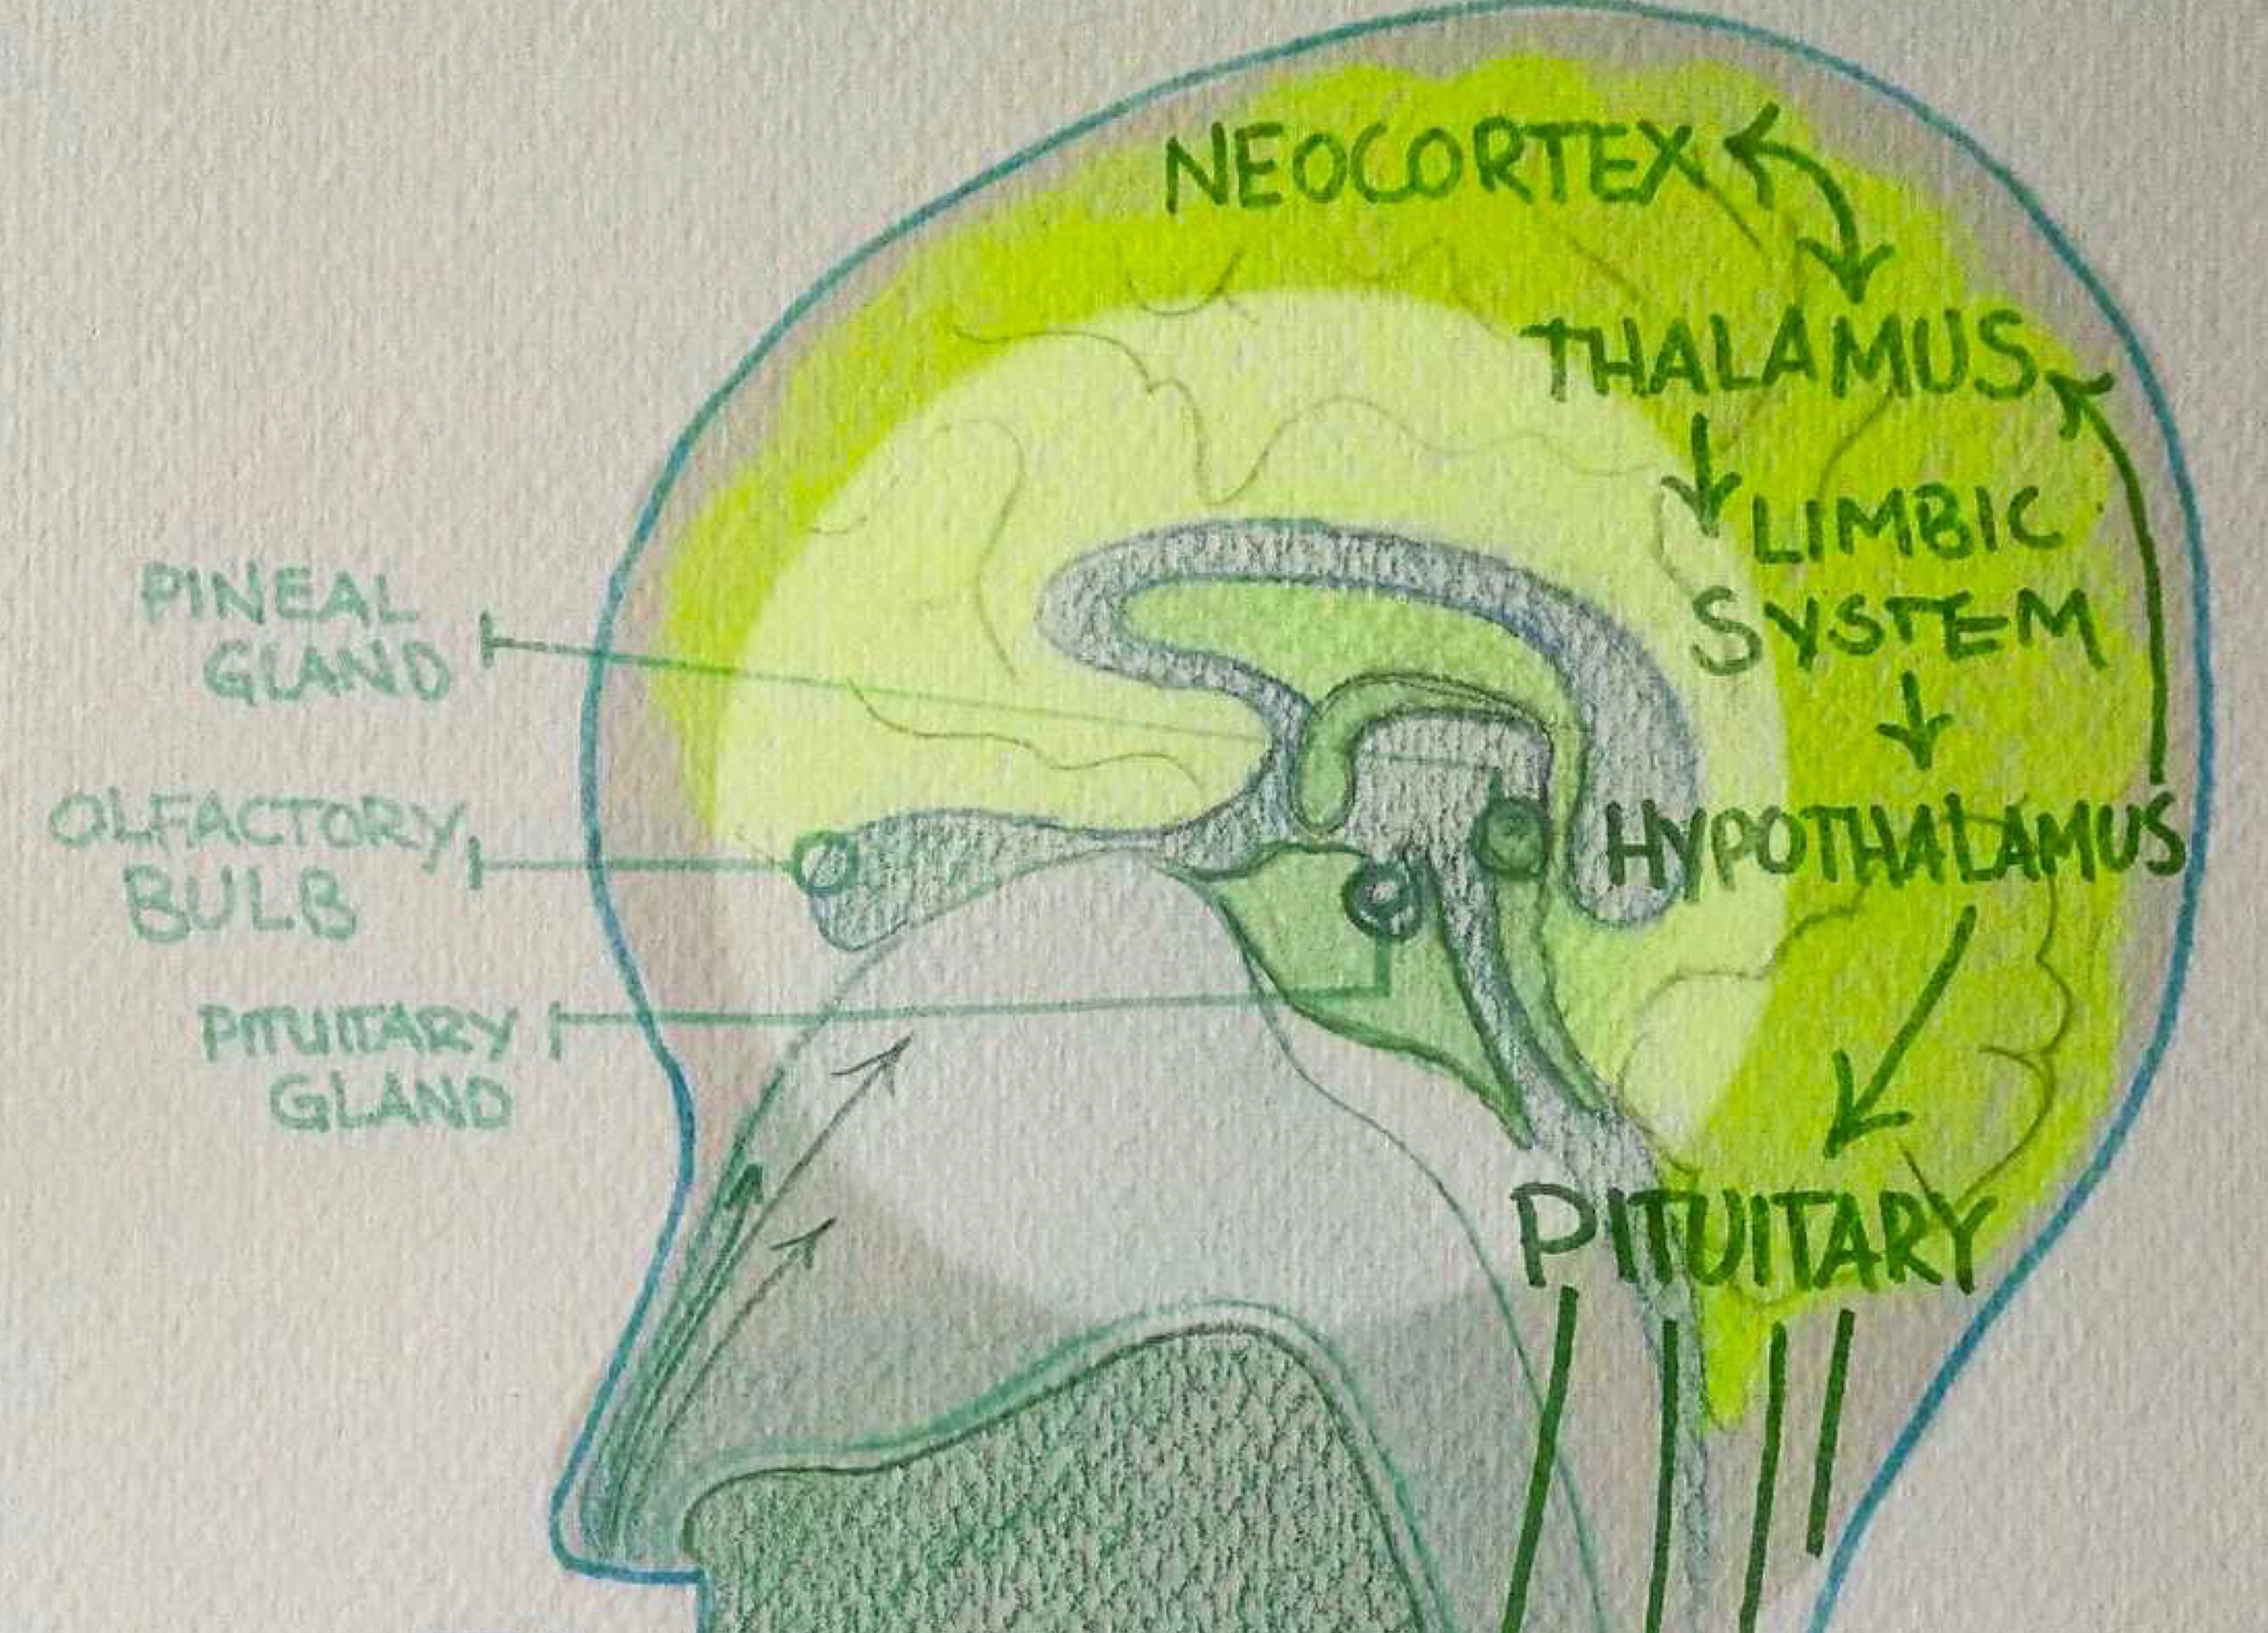 NEOCORTEX
THALAMUS
LIMBIC
SYSTEM
HYPOTHALAMUS
PITUITARY
PINEAL
GLAND
OLFACTORY
BULB
PITUITARY
GLAND